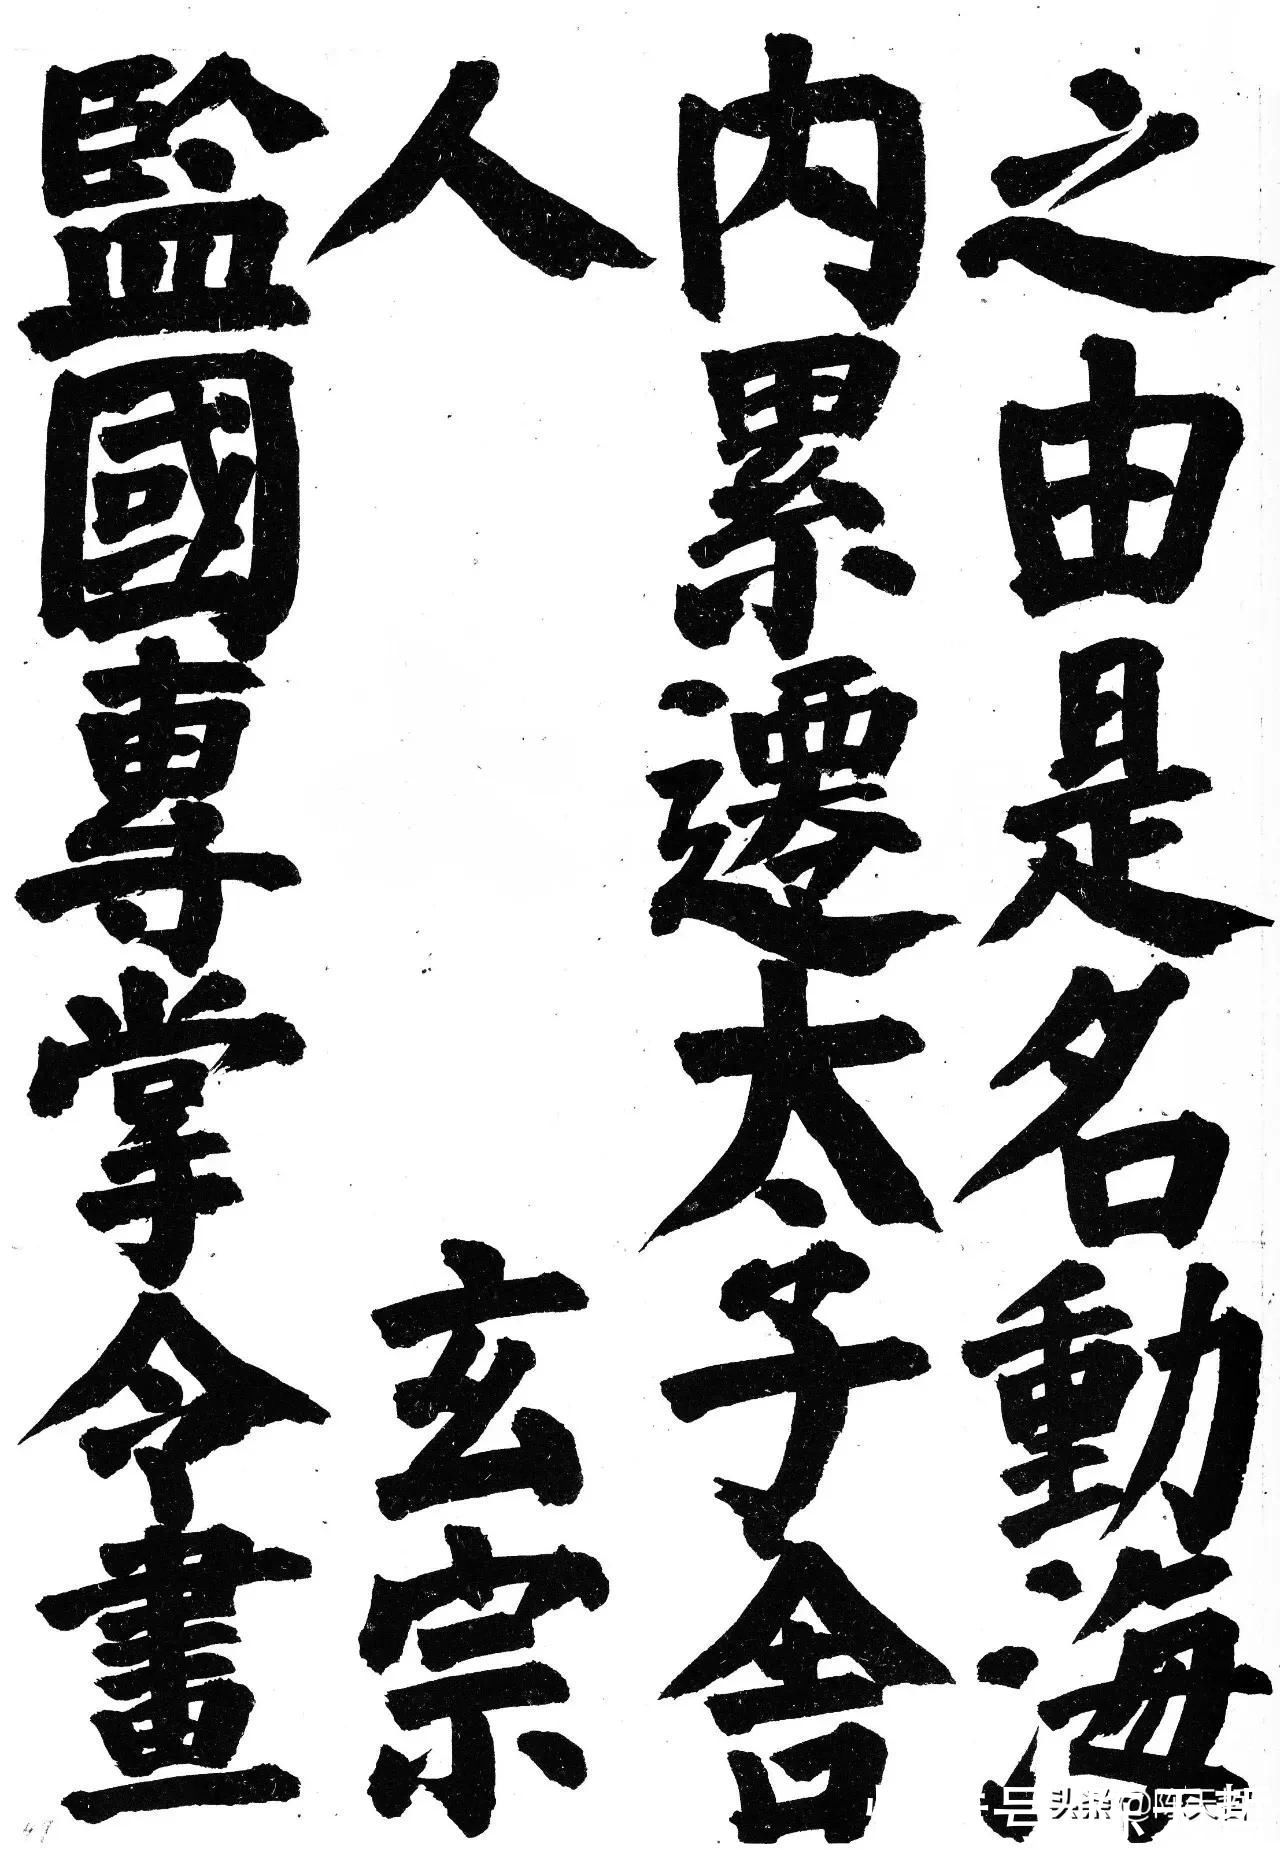 之由是名動海
内累遷太子舍
人玄宗
監國專掌令畫
头条@陈天哲
49